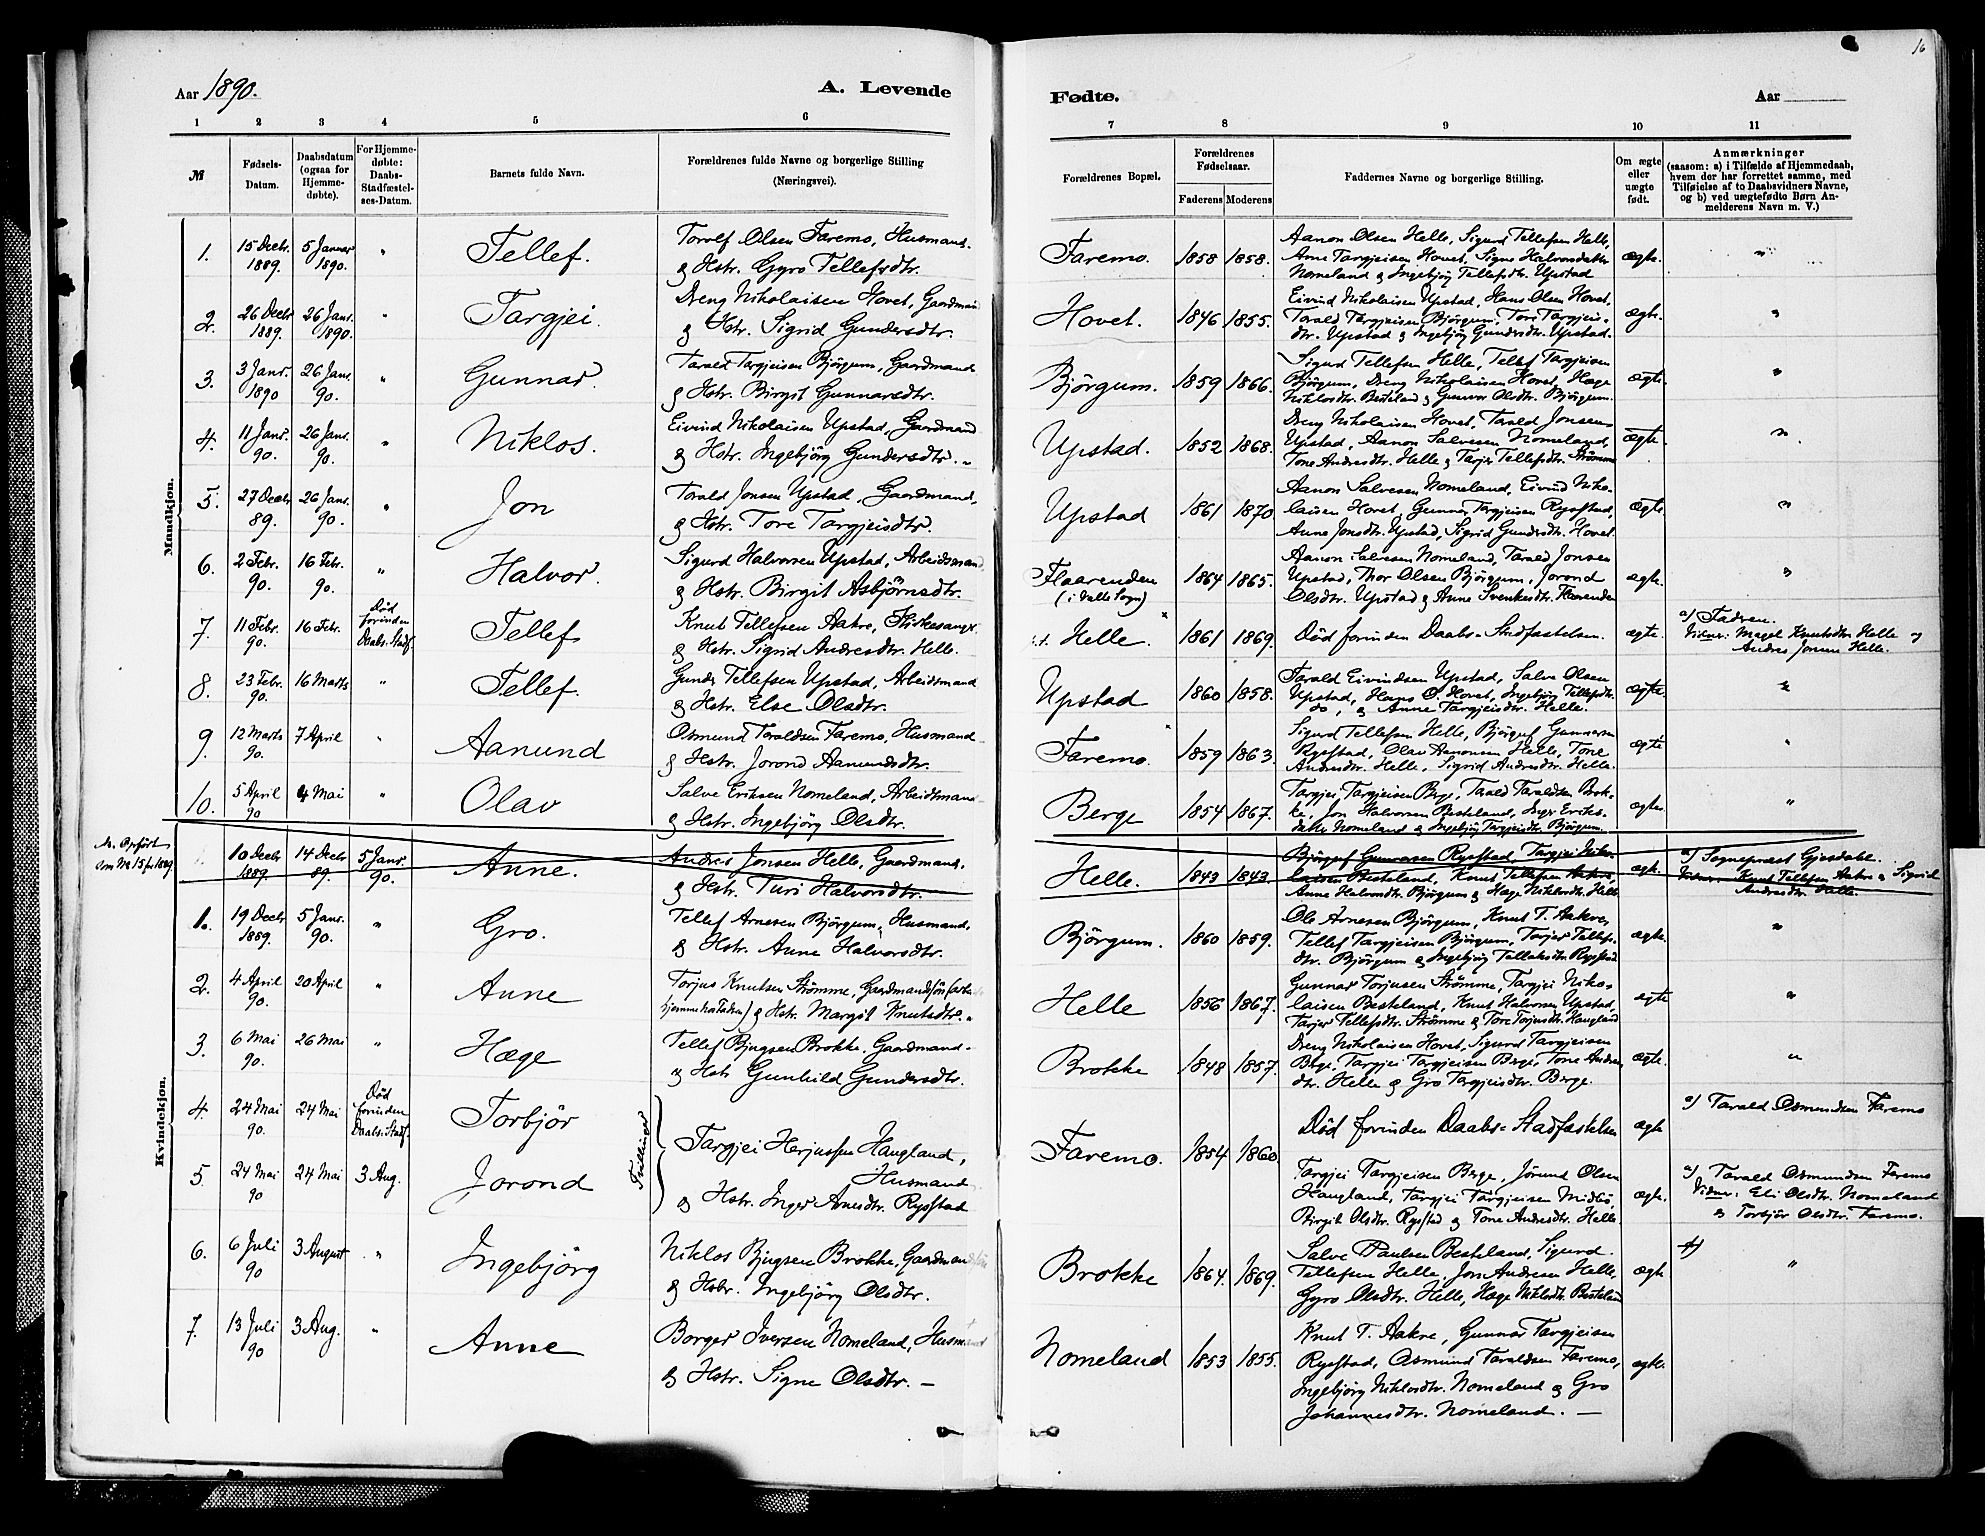 16
Aar 1890.
A. Levende
Fødte.
Aar
1 2 3 4 5 6 7 8 9 10 11
№
Fødsels-
Datum.
Daabsdatum
(ogsaa for
Hjemme-
døbte).
For Hjemme-
døbte:
Daabs-
Stadfæstel-
ses-Datum.
Barnets fulde Navn.
Forældrenes fulde Navne og borgerlige Stilling
(Næringsvei).
Forældrenes Bopæl.
Forældrenes
Fødselsaar.
Faderens Moderens
Faddernes Navne og borgerlige Stilling.
Om ægte
eller
uægte
født.
Anmærkninger
(saasom: a) i Tilfælde af Hjemmedaab,
hvem der har forrettet samme, med
Tilføielse af to Daabsvidners Navne,
og b) ved uægtefødte Børn An-
melderens Navn m. V.)
Mandkjøn.
1. 15 Decbr. 1889. 5 Januar 1890. " Tellef.
Torolf Olsen Faremo, Husmand.
& Hstr. Gyro Tellefsdtr.
Faremo. 1858 1858.
Aanon Olsen Helle, Sigurd Tellefsen Helle,
Arne Targjeisen Hovet, Signe Halvorsdatter
Nomeland & Ingebjøg Tellefsdtr. Upstad
ægte. "
2. 26 Decbr 1889. 26 Jans. 1890. " Targjei.
Dreng Nikolaisen Hovet, Gaardmand
& Hstr. Sigrid Gundersdtr.
Hovet. 1846 1855.
Eivind Nikolaisen Upstad, Hans Olsen Hovet,
Torald Targjeisen Bjørgum, Tore Targjeis-
dtr. Upstad & Ingebjøg Gundersdtr. Upstad.
ægte. "
3. 3 Janr. 1890 26 Jans. 90. " Gunnar.
Tarald Targjeisen Bjørgum, Gaardmand
& Hstr. Birgit Gunnarsdtr.
Bjørgum. 1859 1866.
Sigurd Tellefsen Helle, Tellef Targjeisen
Bjørgum, Dreng Nikolaisen Hovet, Hæge
Niklosdtr. Besteland & Gunvor Olsdtr. Bjørgum.
ægte. "
4. 11 Jans. 90. 26 Jans. 90. " Niklos.
Eivind Nikolaisen Upstad, Gaardmand
& Hstr. Ingebjørg Gundersdtr. "
Upstad. 1852 1868.
Dreng Nikolaisen Hovet, Torald Jonsen
Upstad, Aanon Salvesen Nomeland,
Tone Andresdtr. Helle & Tarjer Tellefsdtr. Strømme
ægte. "
5. 27 Decbr 89. 26 Jans. 90. " Jon
Torald Jonsen Upstad, Gaardmand,
& Hstr. Tore Targjeisdtr.
Upstad 1861 1870
Aanon Salvesen Nomeland, Eivind Niko-
laisen Hovet, Gunnar Targjeisen Rysstad,
Anne Jonsdtr. Upstad, Sigrid Gundersdtr. Hovet.
ægte. "
6. 2 Febr. 90. 16 Febr. 90. " Halvor.
Sigurd Halvorsen Upstad, Arbeidsmand
& Hstr. Birgit Asbjørnsdtr.
Flaarenden
(i Valle Sogn) 1864 1865.
Aanon Salvesen Nomeland, Tarald Jonsen
Upstad, Thor Olsen Bjørgum, Jorond
Olsdtr. Upstad & Anne Svenkesdtr. Flaarenden
ægte. "
7. 11 Febr. 90. 16 Febr. Død forinden Daabs. Stadf. Tellef
Knut Tellefsen Aakre, Kirkesanger
& Hstr. Sigrid Andresdtr. Helle.
Helle 1861 1869.
Død forinden Daabs-Stadfæstelsen.
ægte.
a) Fadren.
Vidner: Magel Knutsdtr Helle &
Andres Jonsen Helle.
8. 23 Febr. 90. 16 Marts " Tellef.
Gunder Tellefsen Upstad, Arbeidsmand
& Hstr. Else Olsdtr.
Upstad 1860 1858.
Tarald Eivindsen Upstad, Salve Olsen
Upstad, Hans O. Hovet, Ingebjøg Tellefsdtr.
do, & Anne Targjeisdtr. Helle.
ægte. "
9. 12 Marts 90. 7 April " Aanund
Osmund Toraldsen Faremo, Husmand
& Hstr. Jorond Aanundsdtr.
Faremo. 1859 1863.
Sigurd Tellefsen Helle, Bjørgulf Gunnarsen
Rysstad, Olav Aanonsen Helle, Tone
Andresdtr. Helle, Sigrid Andresdtr. Helle.
ægte "
10. 5 April 90 4 Mai " Olav
Salve Eriksen Nomeland, Arbeidsmand
& Hstr. Ingebjørg Olsdtr.
Berge 1854 1867.
Targjei Targjeisen Berge, Tarald Taraldsen Brok-
ke, Jon Halvorsen Besteland, Inger Eriks-
datter Nomeland & Ingebjøg Targjeisdtr Bjørgum.
ægte. "
Kvindekjøn.
Opført
som No 15 for 1889.
10 Decbr 1889. 14 Decbr 89. 5 Janr. 90. Anne.
Andres Jonsen Helle, Gaardmand,
& Hstr. Turi Halvorsdtr.
Helle. 1843 1843.
Bjørgulf Gunnarsen Rysstad, Targjei Niko-
laisen Besteland, Knut Tellefsen Aakre,
Anne Halvorsdtr Bjørgum & Hæge Niklosdtr. Helle
ægte.
a) Sogneprest Gjesdahl.
Vidner: Knut Tellefsen Aakre & Sigrid
Andresdtr. Helle.
1. 19 Decbr 1889. 5 Jans. 90. " Gro.
Tellef Arnesen Bjørgum, Husmand.
& Hstr. Anne Halvorsdtr.
Bjørgum. 1860 1859.
Ole Arnesen Bjørgum, Knut T. Aakre,
Tellef Targjeisen Bjørgum, Torjer Tellefs-
dtr. Bjørgum & Ingebjøg Tellefsdtr. Rysstad
ægte. "
2. 4 April 90. 20 April " Anne
Torjus Knutsen Strømme, Gaardmandssøn
hjemme hos Faderen) & Hstr. Margit Knutsdtr. "
Helle 1856 1867.
Gunnar Torjusen Strømme, Targjei Niko-
laisen Besteland, Knut Halvorsen Upstad,
Tarjer Tellefsdtr. Strømme & Tore Torjusdtr. Haugland
ægte "
3. 6 Mai 90. 26 Mai " Hæge
Tellef Bjugsen Brokke, Gaardmand.
& Hstr Gunhild Gundersdtr.
Brokke 1848 1857.
Dreng Nikolaisen Hovet, Sigurd Targjeisen
Berge, Targjei Targjeisen Berge, Tone Andres
dtr. Helle & Gro Targjeisdtr. Berge.
ægte. "
4. 24 Mai 90. 24 Mai Død forinden Daabs. Stadf. Torbjør
Tvillinger
Targjei Herjussen Haugland,
Husmand
& Hstr. Inger Arnesdtr. Rysstad
Faremo. 1854 1860.
Død forinden Daabs-Stadfæstelsen
ægte
a) Tarald Osmundsen Faremo
5. 24 Mai 90 24 Mai 3 Aug. Jorond
Targjei Targjeisen Berge, Jorund Olsen
Haugland, Targjei Targjeisen Midbø,
Birgit Olsdtr. Rysstad & Tone Andresdtr. Helle.
ægte.
a) Tarald Osmundsen Faremo
Vidner: Eli Olsdtr. Nomeland
& Torbjør Olsdtr. Faremo.
6. 6 Juli 90 3 August " Ingebjørg
Niklos Bjugsen Brokke, Gaardmand
& Hstr. Ingebjørg Olsdtr.
Brokke 1864. 1869.
Salve Paulsen Besteland, Sigurd
Tellefsen Helle, Jon Andresen Helle,
Gyro Olsdtr. Helle, Hæge Niklosdtr Besteland
ægte. "
7. 13 Juli 90 3 Aug. " Anne
Borger Iversen Nomeland, Husmand
& Hstr. Signe Olsdtr. —
Nomeland 1853 1855.
Knut T. Aakre, Gunnar Targjeisen
Rysstad, Osmund Taraldsen Faremo,
Ingebjørg Niklosdtr. Nomeland & Gro
Johannesdtr. Nomeland. —
ægte.